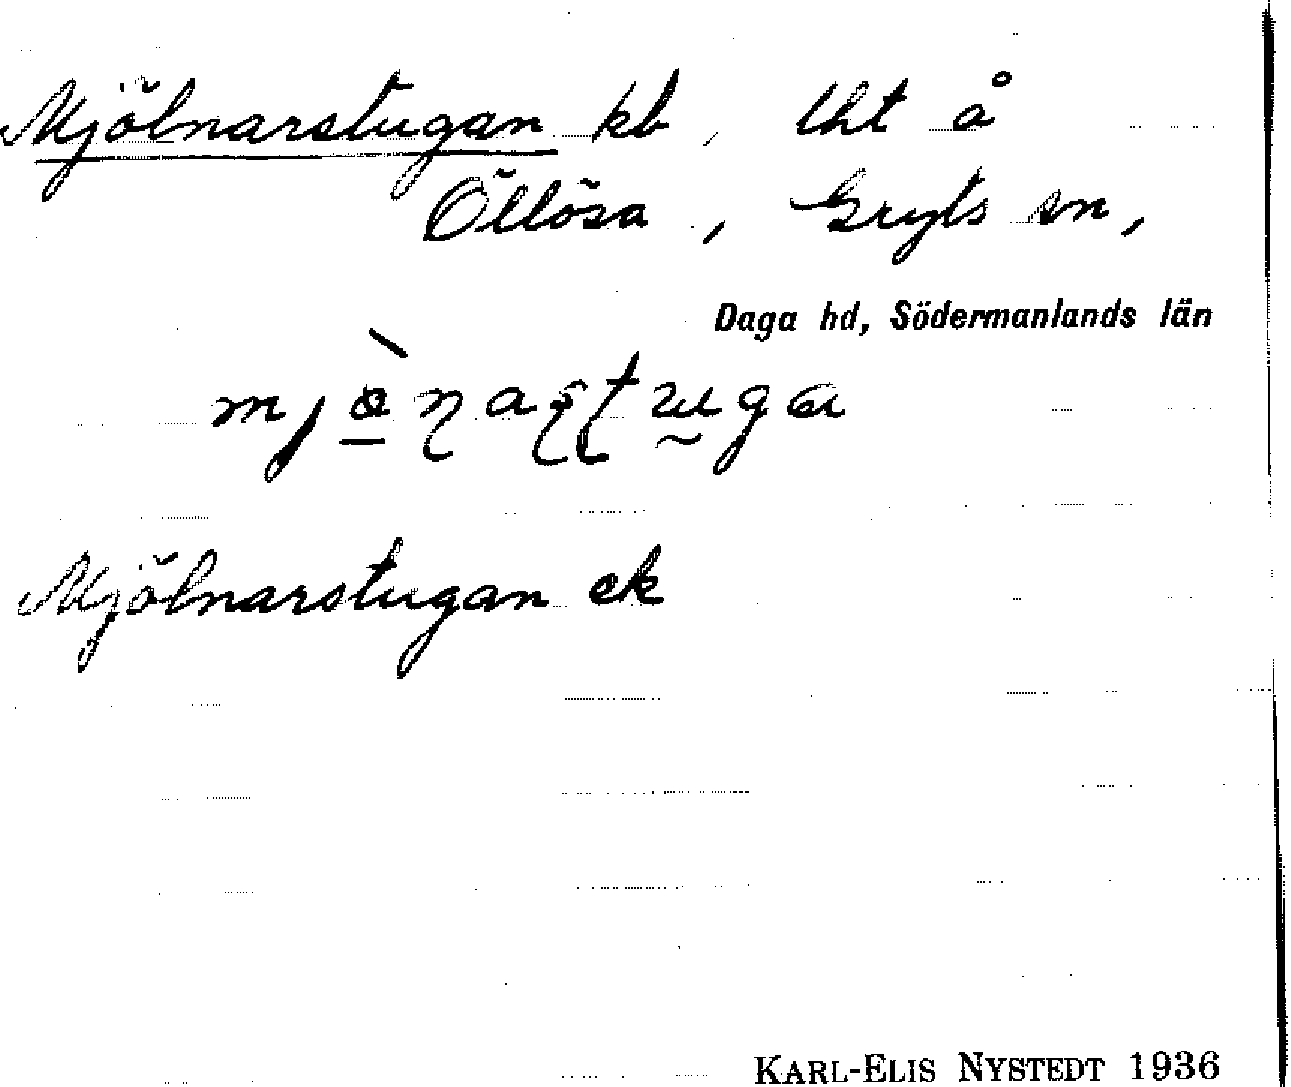 Mjölnarstugan kb, lht å
Öllösa, Gryts sn,
Daga hd, Södermanlands län
Mjölnarstugan ek
KARL-ELIS NYSTEDT 1936